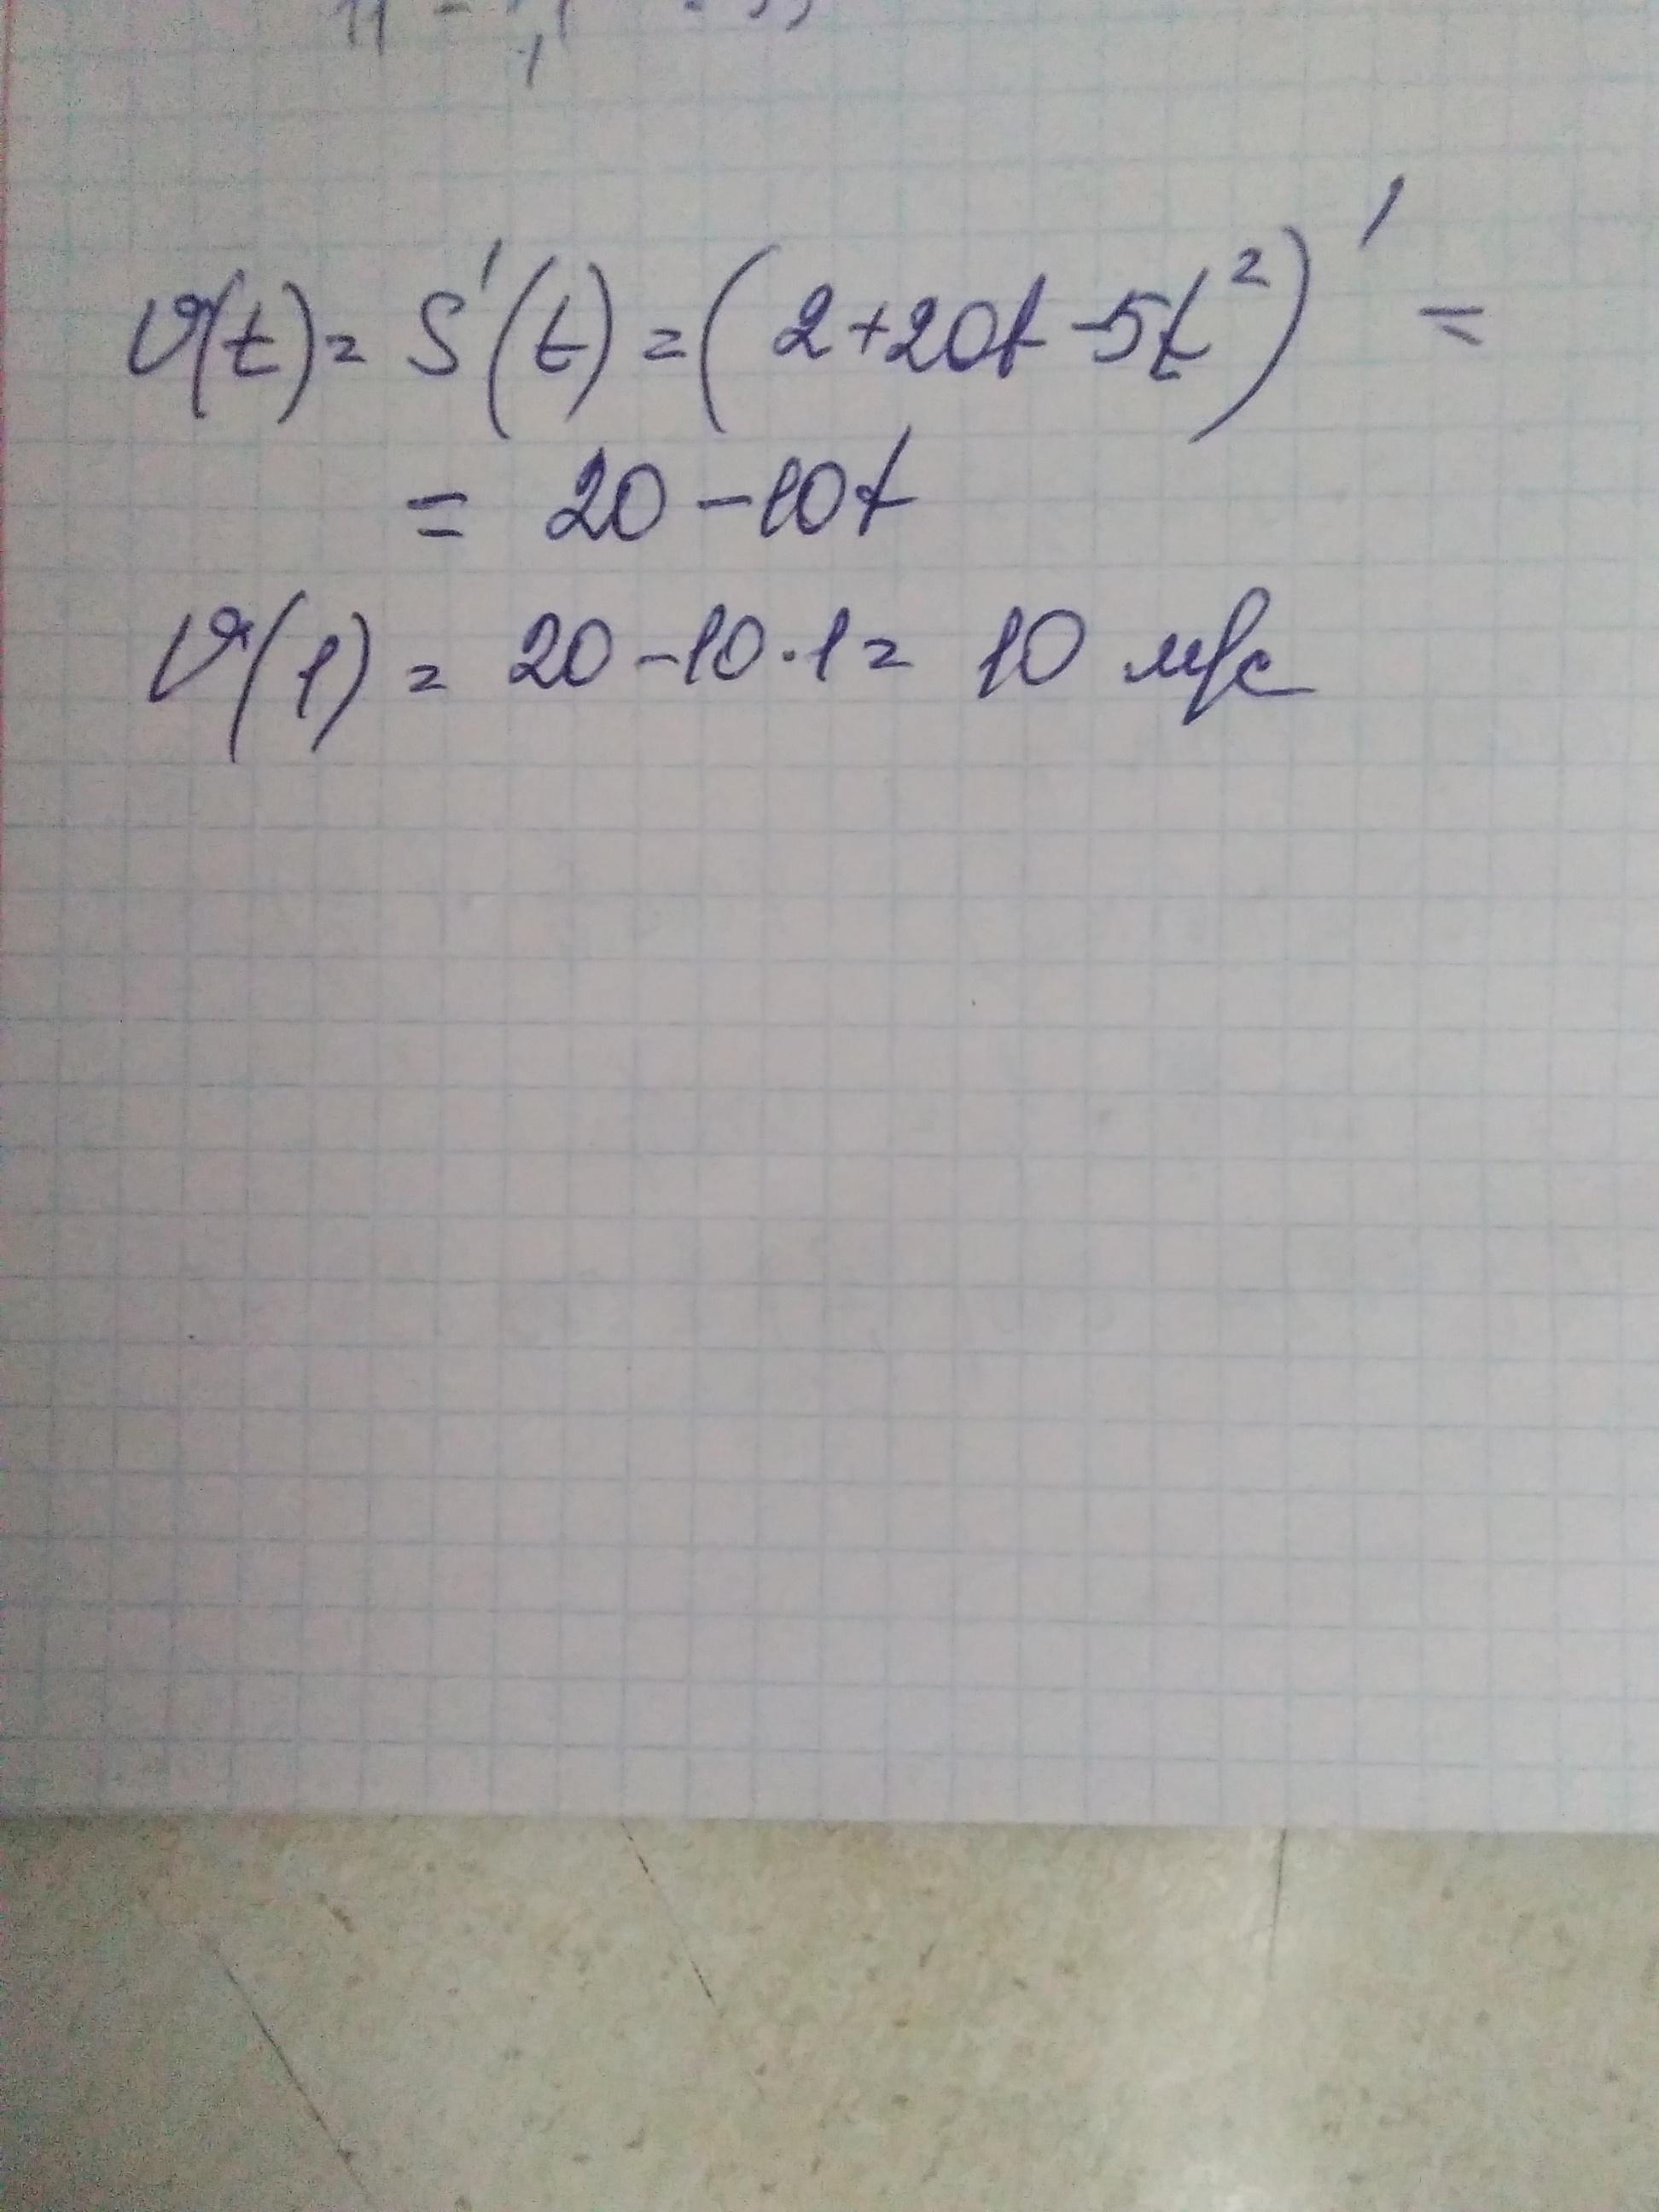 v(t) = S'(t) = (2+20t-5t²)' =
= 20-10t
v(1) = 20-10·1 = 10 м/с